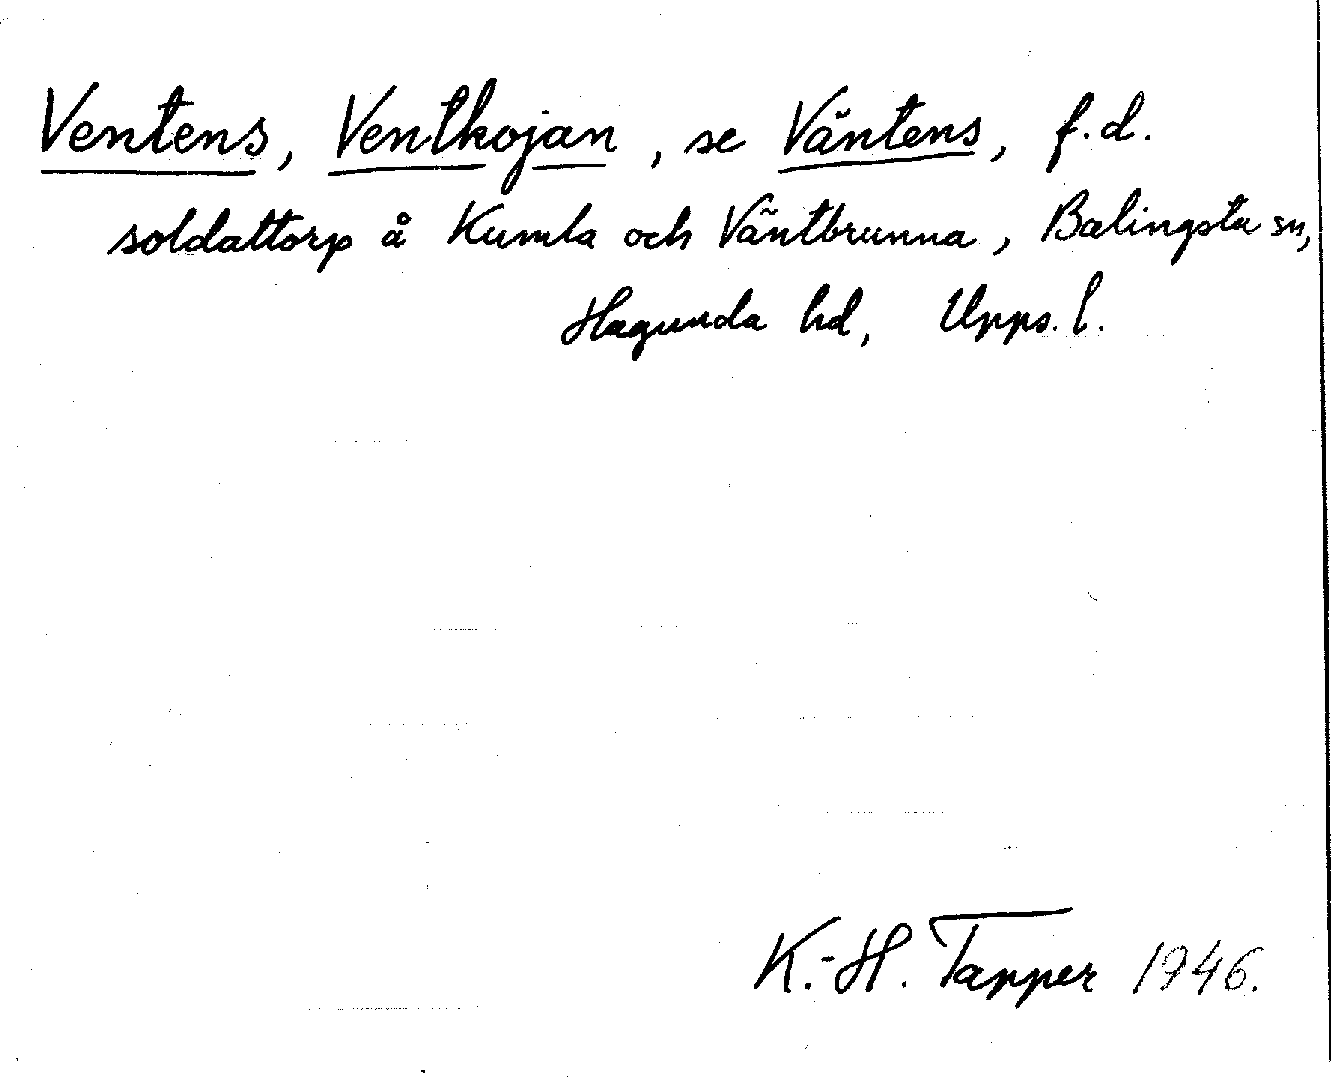 Ventens, Ventkojan, se Väntens, f.d.
soldattorp å Kumla och Väntbrunna, Balingsta sn,
Hagunda hd, Upps. l.
K.-H. Tapper 1946.